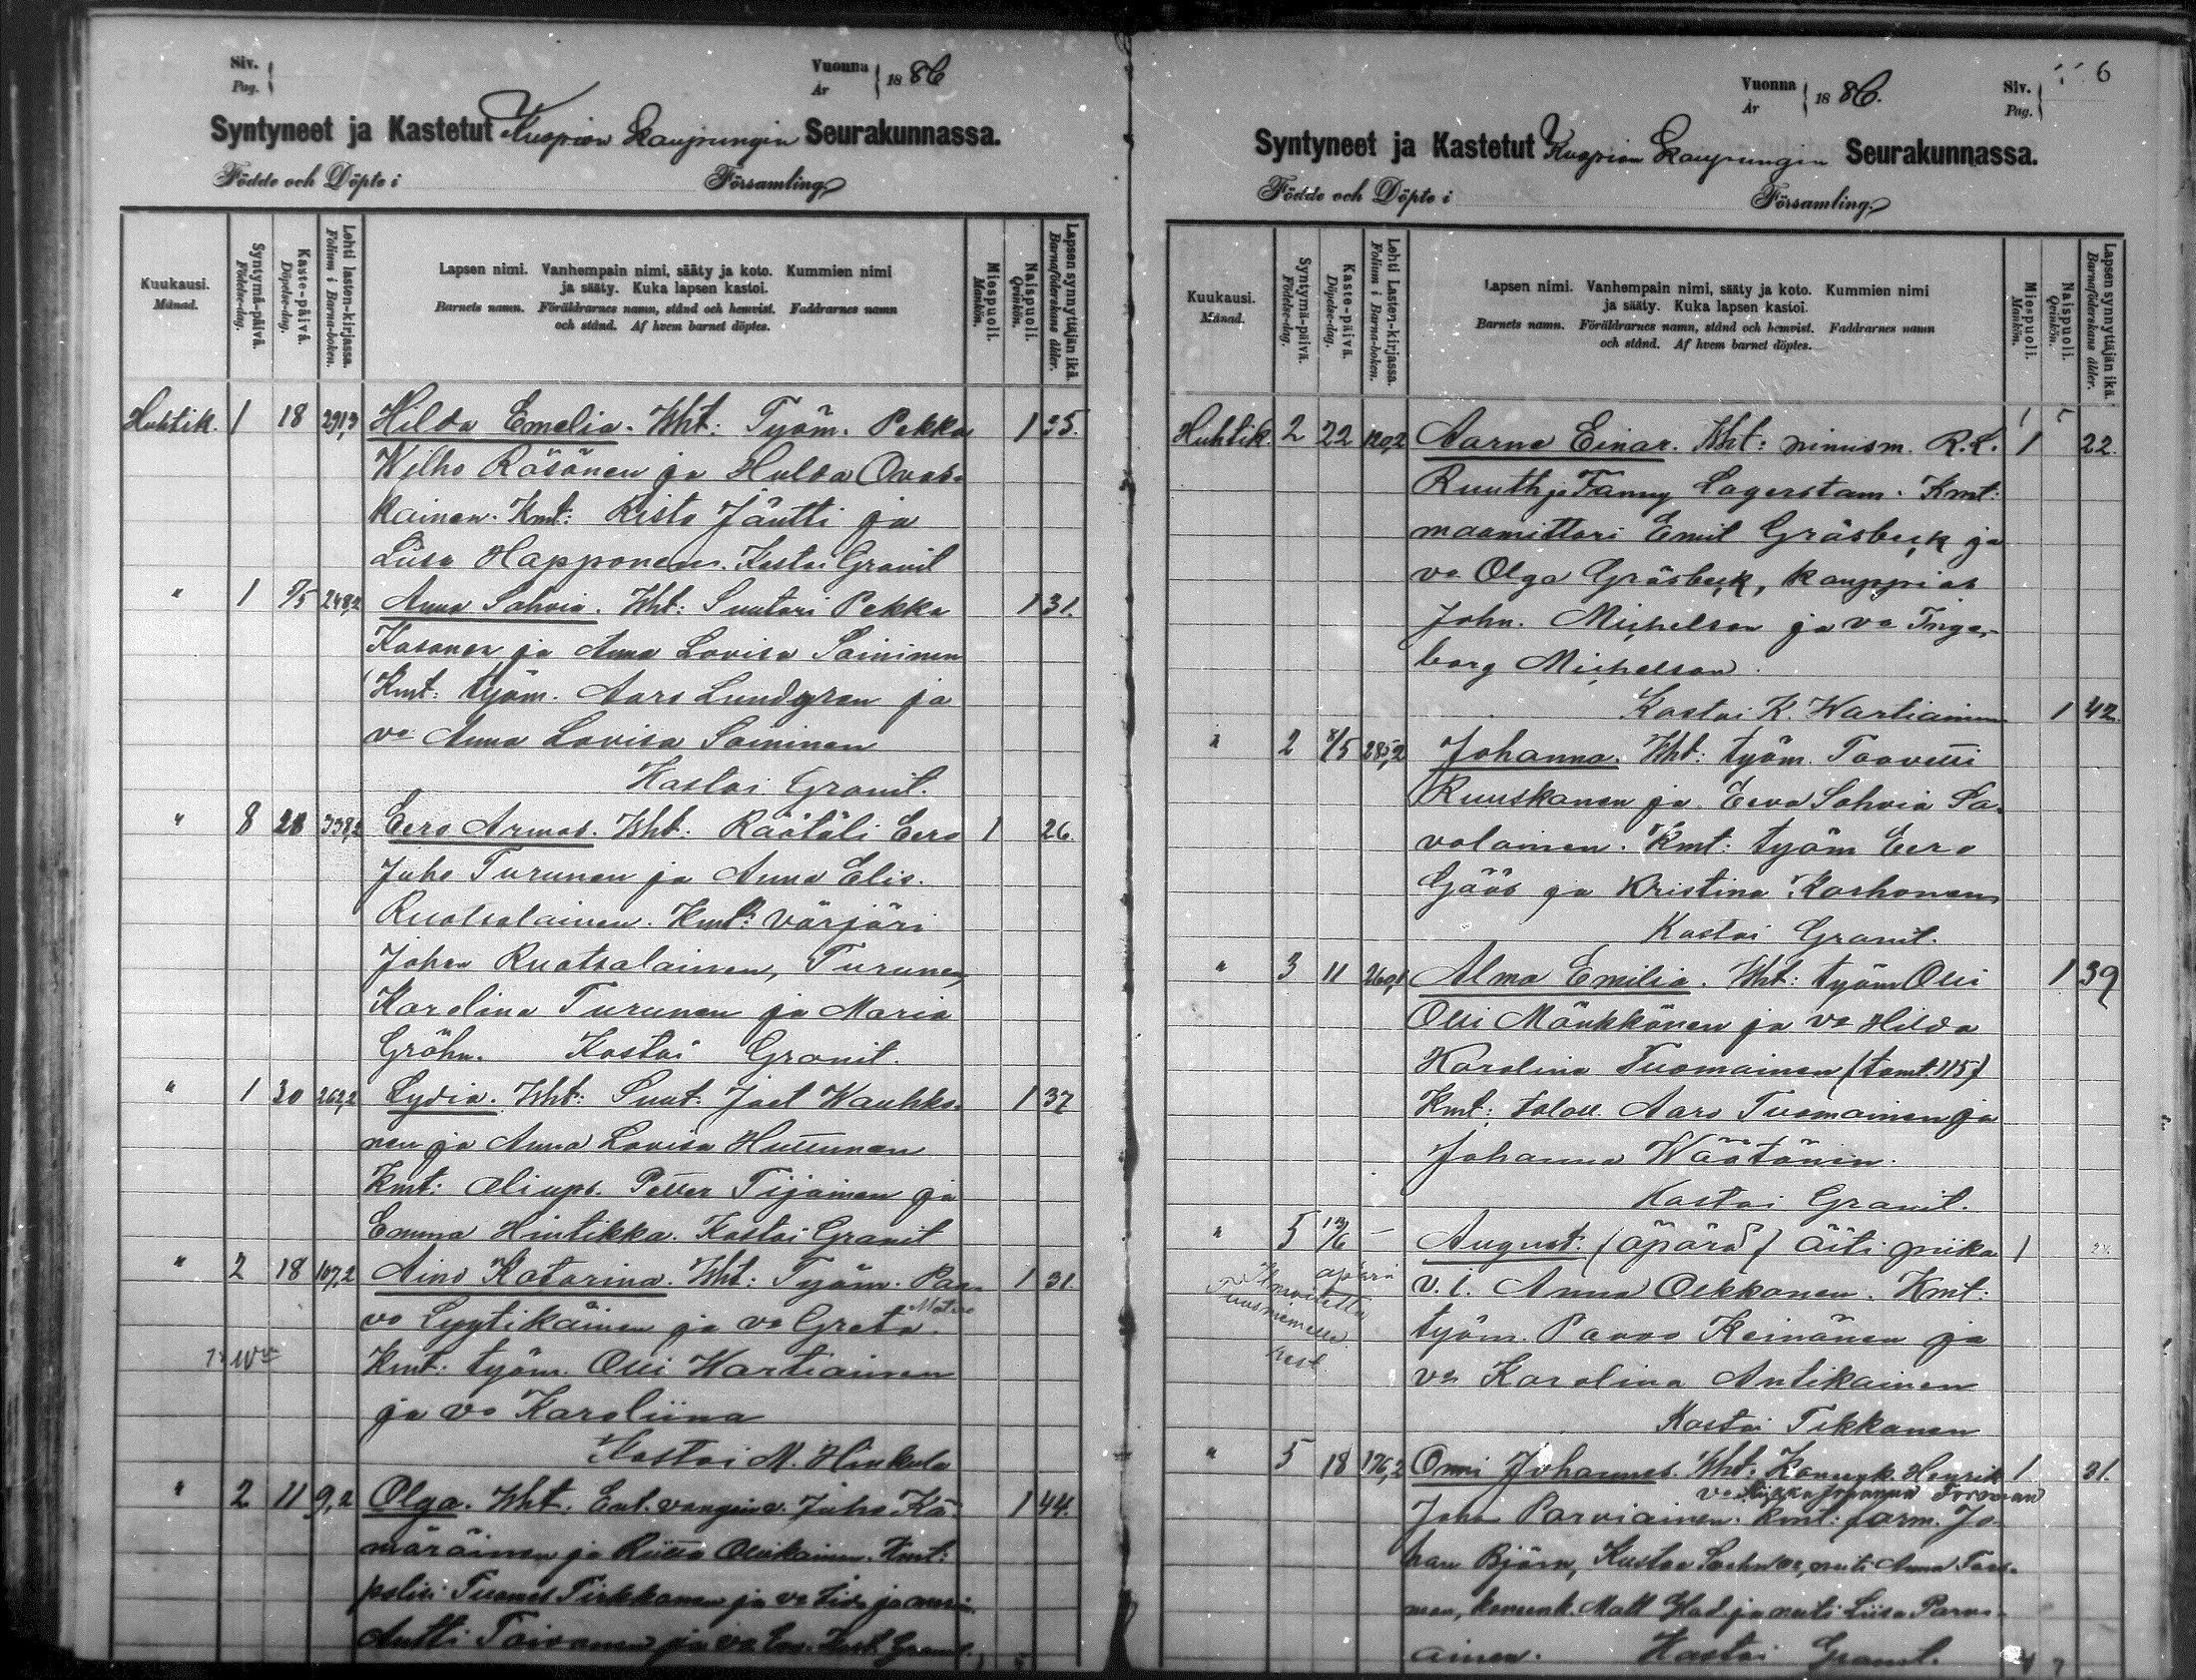 Siv.
Pag.
Vuonna
År
18 86
Syntyneet ja Kastetut Kuopion kaupungin Seurakunnassa.
Födde och Döpte i Församling
Kuukausi.
Månad.
Syntymä-päivä.
Födelse-dag.
Kaste-päivä.
Döpelse-dag.
Lehti lasten-kirjassa.
Folium i Barna-boken.
Lapsen nimi. Vanhempain nimi, sääty ja koto. Kummien nimi
ja sääty. Kuka lapsen kastoi.
Barnets namn. Föräldrarnes namn, stånd och hemvist. Faddrarnes namn
och stånd. Af hvem barnet döptes.
Miespuoli.
Mankön.
Naispuoli.
Qvinkön.
Lapsen synnyttäjän ikä.
Barnaföderskans ålder.
Huhtik. 1 18 291,3 Hilda Emelia. Wht: Työm. Pekka 1 35.
Wilho Räsänen ja Hulda Ovas-
kainen. Kmt: Risto Jäutti ja
Liisa Happonen. Kastoi Granit
" 1 248,2 Anna Sohvia. Wht: Suutari Pekka 1 31.
Kosonen ja Anna Lovisa Soininen
Kmt: työm. Aaro Lundgren ja
vo Anna Lovisa Soininen
Kastoi Granit.
" 8 28 338,2 Eero Armas. Wht: Räätäli Eero 1 26.
Juho Turunen ja Anna Elis.
Ruotsalainen. Kmt: värjäri
Johan Ruotsalainen, Turunen,
Karolina Turunen ja Maria
Gröhn. Kastoi Granit.
" 1 30 262,2 Lydia. Wht: Suut. Joel Wauhko- 1 37
nen ja Anna Lovisa Huttunen
Kmt: aliups. Petter Tijainen ja
Emma Hintikka. Kastoi Granit
" 2 18 107,2 Aino Katarina. Wht: Työm. Paa- 1 31.
vo Lyytikäinen ja vo Greta
Kmt: työm. Olli Wartiainen
ja vo Karoliina
Kastoi M. Hinkula
" 2 11 9,2 Olga. Wht. Ent. Juho Kä- 1 44.
märäinen ja Riitta Ollikainen. Kmt:
poliisi Tuomas Tirkkonen ja vo Iida ja
Antti Toivanen ja vo Eva. Kast. Granit.
Vuonna
År
18 86.
Siv.
Pag.
6
Syntyneet ja Kastetut Kuopion Kaupungin Seurakunnassa.
Födde och Döpte i Församling
Kuukausi.
Månad.
Syntymä-päivä.
Födelse-dag.
Kaste-päivä.
Döpelse-dag.
Lehti Lasten-kirjassa.
Folium i Barna-boken.
Lapsen nimi. Vanhempain nimi, sääty ja koto. Kummien nimi
ja sääty. Kuka lapsen kastoi.
Barnets namn. Föräldrarnes namn, stånd och hemvist. Faddrarnes namn
och stånd. Af hvem barnet döptes.
Miespuoli.
Mankön.
Naispuoli.
Qvinkön.
Lapsen synnyttäjän ikä.
Barnaföderskans ålder.
Huhtik. 2 22 120,2 Aarne Einar. Wht: nimism. R.L. 1 22.
Ruuth ja Fanny Lagerstam. Kmt:
maamittari Emil Gräsbeck ja
vo Olga Gräsbeck, kauppias
John. Michelson ja vo Inge-
borg Michelson.
Kastoi K. Wartiainen
" 2 8/5 285,2 Johanna. Wht: työm. Taavetti 1 42.
Ruuskanen ja Eeva Sohvia Sa-
volainen. Kmt: työm Eero
Göös ja Kristina Korhonen
Kastoi Granit.
" 3 11 260,1 Alma Emilia. Wht: työm Olli 1 39
Olli Mönkkönen ja vo Hilda
Karolina Tuomainen (tomt. 115)
Kmt: taloll. Aaro Tuomainen ja
Johanna Wäätänin.
Kastoi Granit.
" 5 – August. (äpärä) äiti piika 1
v. i. Anna Oikkonen. Kmt:
työm. Paavo Keinänen ja
vo Karolina Antikainen
Kastoi Tikkanen
äpärä
Ilmoitettu
Tuusniemelle
kast.
" 5 18 176,2 Onni Johannes. Wht: Koneenk. Henrik 1 31.
Johan Parviainen. Kmt: farm. Jo-
han Björn, Kustaa neiti Anna Fors-
man, koneenk. Matt ja neiti Liisa Parvi-
ainen. Kastoi Granit.